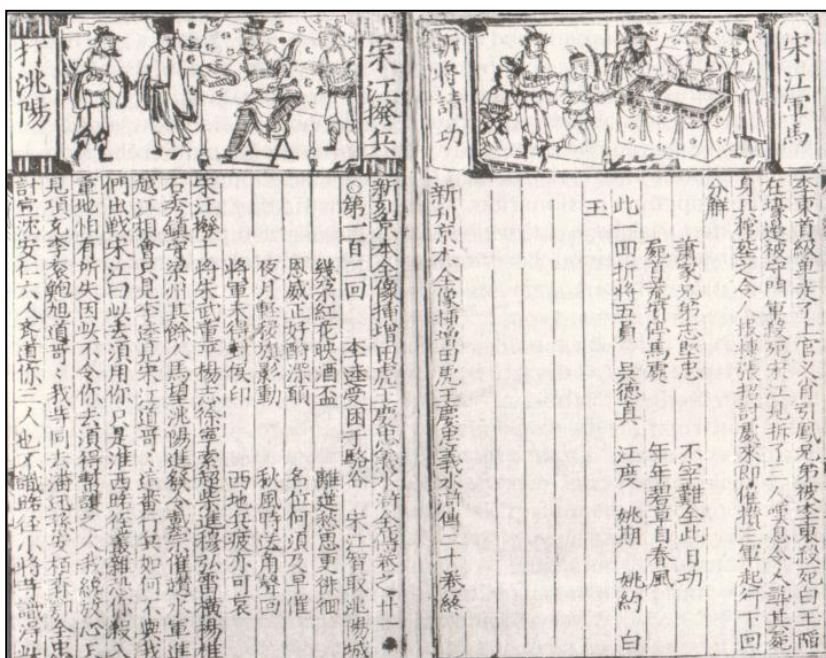 宋江軍馬
斬將請功
李東首級單走了上官义肖引鳳兄弟被李東殺死白玉陷
在壕邊被守門軍殺死宋江見折了三人
張招討處來即催攢三軍起行下回
分解
蕭家兄弟志堅忠 不字難全此日功
首荒墳停馬處 年年碧草自春風
此一回折將五員 吳德真 江度 姚期 姚約 白
玉
新刊京本全像插增田虎王慶忠義水滸傳二十卷終
宋江撥兵
打洮陽
新刻京本全像插增田虎王慶忠義水滸全傳卷之廿一
○第一百回 李逵受困于駱谷 宋江智取洮陽城
幾朶紅花映酒盃 離筵愁思更徘徊
恩威正好酧深願 名位何須及早催
夜月輕移旗影動 秋風時送角聲回
將軍未得侯印 西地兵疲亦可哀
宋江撥十將朱武董平楊志徐寧索超柴進穆弘雷橫楊雄
石秀鎮守梁州其餘人馬望洮陽進發令戴宗催趲水軍進
越江相會只見李逵見宋江道哥〻這番行兵如何不與我
們出戰宋江曰以去須用你只是淮西路徑叢雜恐你殺入
重地怕有所失因以不令你去須得幫護之人我纔放心只
見項充李袞鮑旭道哥〻我等同去潘迅孫安栢森和全忠
計宣沈安仁六人齊道你三人也不識路径小將等識得此